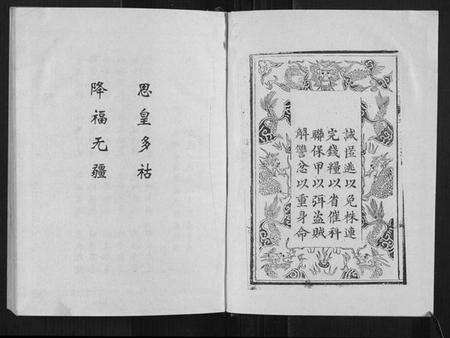 誡匿逃以免株連
完錢糧以省催科
聯保甲以弭盜賊
解讐忿以重身命
思皇多祜
降福无疆